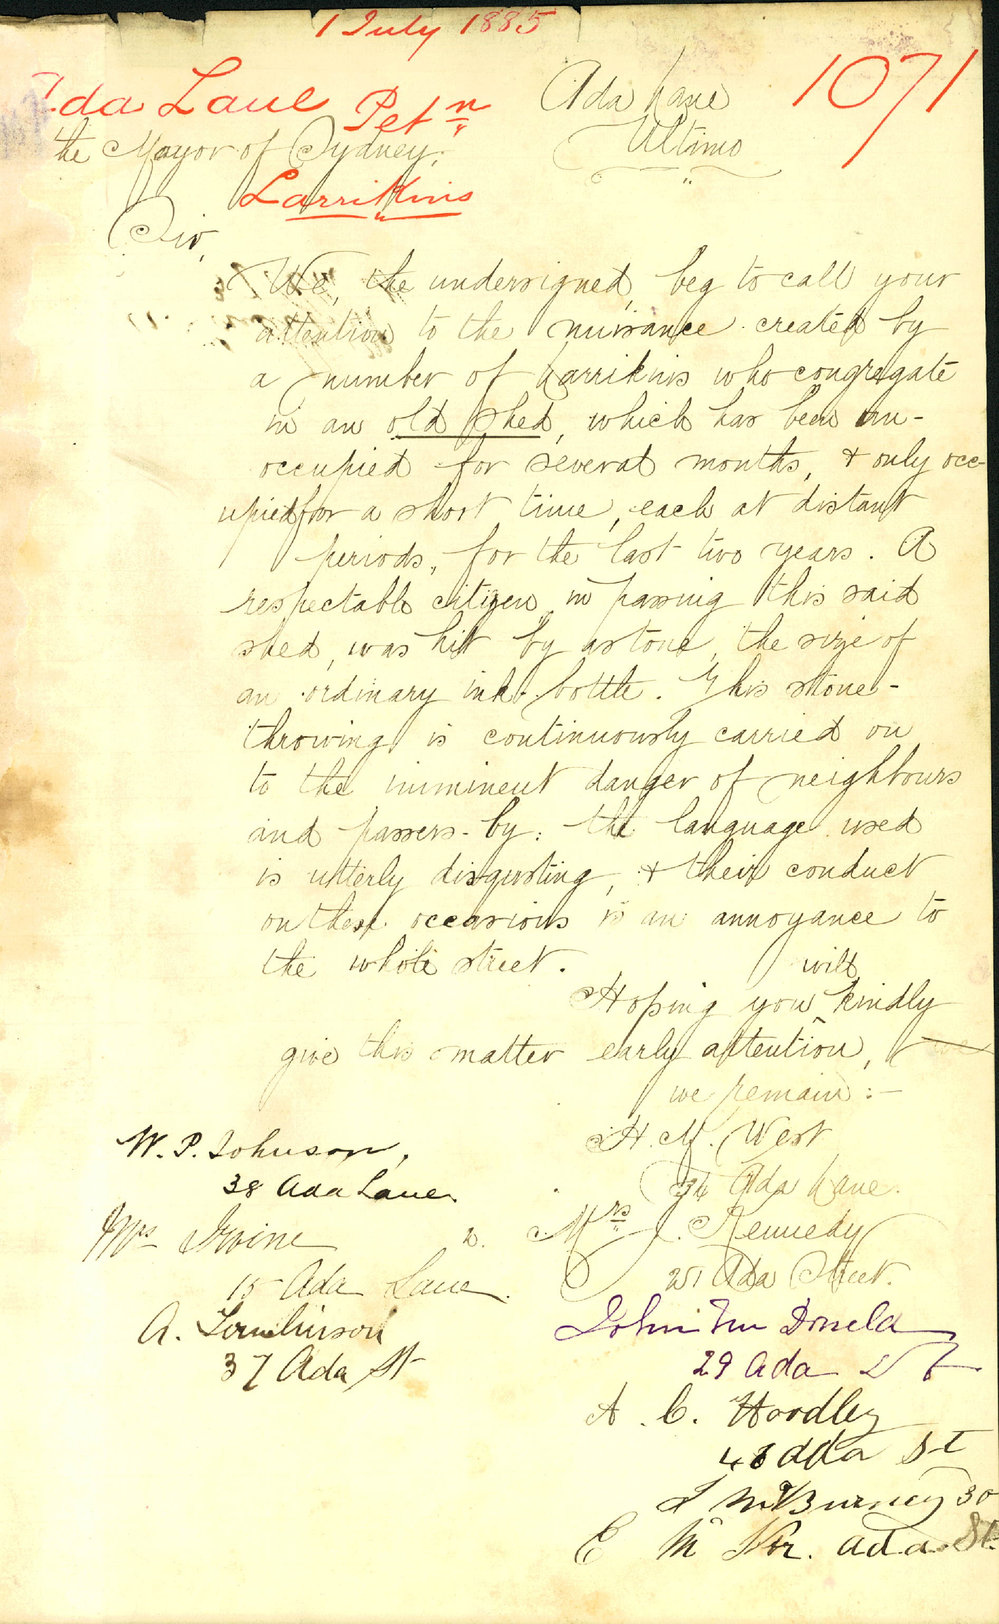 1 July 1885
Ada Lane Petn
1071
Ada Lane
Ultimo
the Mayor of Sydney,
Larrikins
Sir,
We, the undersigned, beg to call your
attention to the nuisance created by
a number of Larrikins who congregate
in an old shed, which has been un-
occupied for several months, & only occ-
upied for a short time, each at distant
periods, for the last two years. A
respectable citizen in passing this said
shed, was hit by a stone, the size of
an ordinary ink-bottle. This stone-
throwing is continuously carried on
to the imminent danger of neighbours
and passers-by: the language used
is utterly disgusting, & their conduct
on these occasions is an annoyance to
the whole street.
Hoping you will kindly
give this matter early attention,
we remain:-
H. M. West
34 Ada Lane.
W. P. Johnson,
38 Ada Lane.
Mrs J. Kennedy
25 Ada Street.
Mrs Irvine
15 Ada Lane.
John Mc Donald
29 Ada St
A. Tomlinson
37 Ada St
A. C. Hoodley
Ada St
McBurney 30
E Mc Ada St.